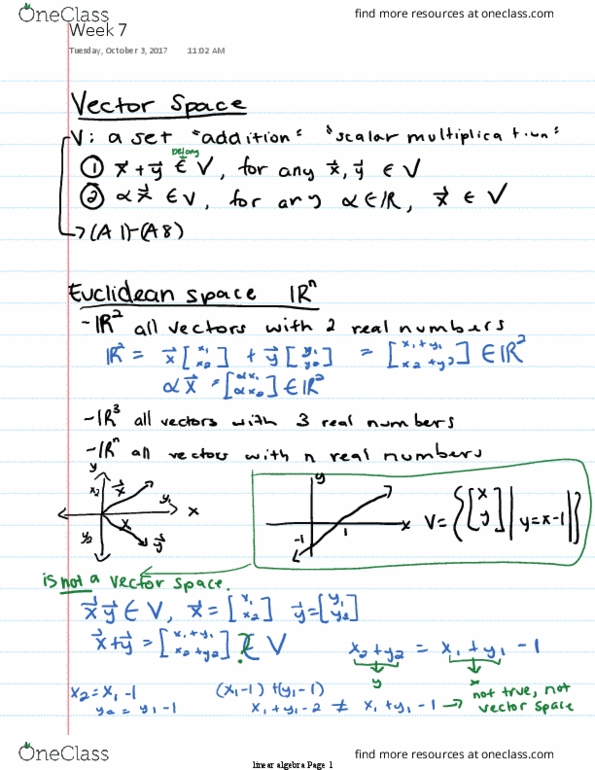 OneClass
find more resources at oneclass.com
Week 7
Tuesday, October 3, 2017 11:02 AM
Vector Space
V: a set "addition" "scalar multiplication"
belong
① x⃗+y⃗ ∈ V, for any x⃗, y⃗ ∈ V
② αx⃗ ∈ V, for any α∈ℝ, x⃗ ∈ V
→(A1)-(A8)
Euclidean space ℝⁿ
-ℝ² all vectors with 2 real numbers
ℝ² = x⃗[x₁ x₂] + y⃗[y₁ y₂] = [x₁+y₁ x₂+y₂] ∈ℝ²
αx⃗ = [αx₁ αx₂] ∈ℝ²
-ℝ³ all vectors with 3 real numbers
-ℝⁿ all vectors with n real numbers
y
x₂ x⃗ y₁
x
y₂ x₁ y⃗
y
-1 1 x
V={[x y] | y=x-1|}
is not a vector space.
x⃗ y⃗ ∈ V, x⃗=[x₁ x₂] y⃗=[y₁ y₂]
x⃗+y⃗ = [x₁+y₁ x₂+y₂] ?∈ V
x₂+y₂ = x₁+y₁ -1
y x
x₂=x₁-1
y₂=y₁-1
(x₁-1)+(y₁-1)
x₁+y₁-2 ≠ x₁+y₁-1 → not true, not
vector space
OneClass
find more resources at oneclass.com
linear algebra Page 1